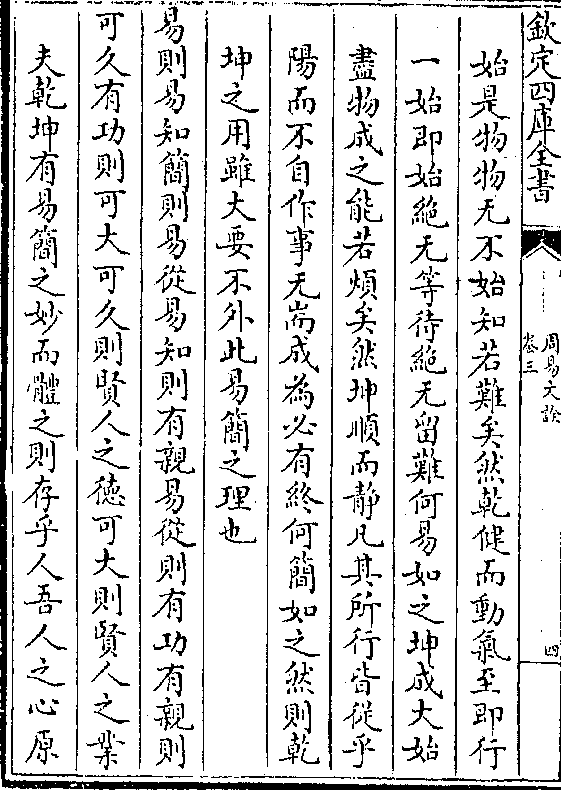 欽定四庫全書
周易文詮
卷三
四
始是物物无不始知若難矣然乾健而動氣至即行
一始即始絶无等待絶无留難何易如之坤成大始
盡物成之能若煩矣然坤順而静凡其所行皆從乎
陽而不自作事无耑成為必有終何簡如之然則乾
坤之用雖大要不外此易簡之理也
易則易知簡則易從易知則有親易從則有功有親則
可久有功則可大可久則賢人之德可大則賢人之業
夫乾坤有易簡之妙而體之則存乎人吾人之心原